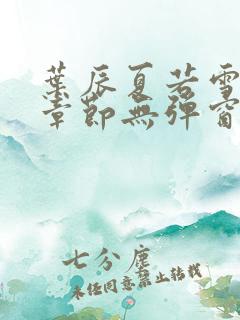 葉辰夏若雪
章節無彈窗
七分塵
未經同意禁止轉載